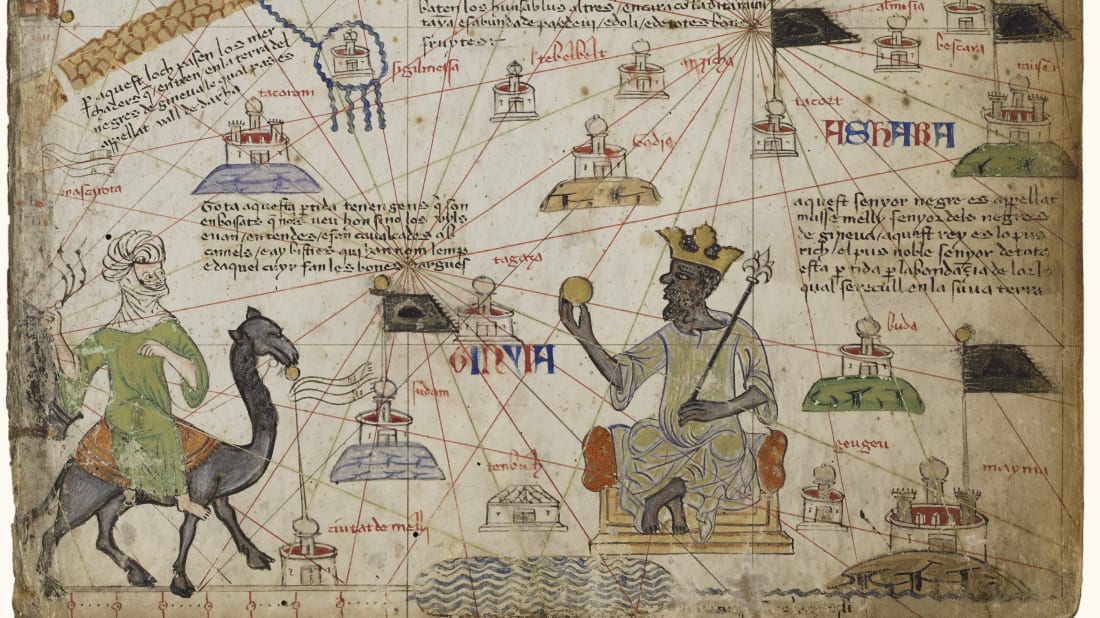 baten los huns ab los altres / encara
es abundade pa de vi / e doli / e de totes bones
fruytes
almsia
bescara
p aquest loch pasen los mer
chaders q̃ entren en la terra del
negres de gineva lo qual pas es
appellat vall de darha
sigilmessa
tebelbelt
tacort
ASHARA
tacorom
tota aquesta ptida tenen gens q̃ son
enbossats q̃ nols veu hom sino los uyls
e van / en tendes / e fan cavalcades ab
camels / e ay bisties qui han nom lemp
e daquel cuyr fan les bones dargues
tagaza
aquest senyor negre es appellat
musse melly senyor dels negres
de gineva / aquest rey es lo pus
rich / el pus noble senyor de tota
esta ptida p labondazia de lor lo
qual se recull en la suua terra
buda
GINYIA
sudam
tenbuch
geugeu
mayma
ciutat de melli